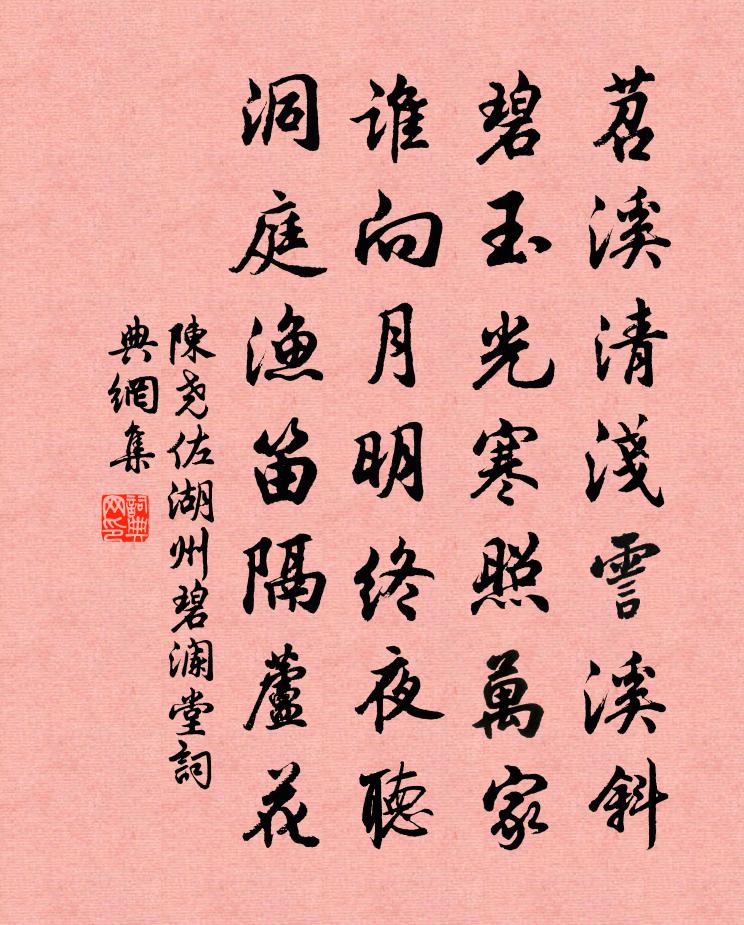 苕溪清淺霅溪斜
碧玉光寒照萬家
谁向月明终夜聽
洞庭渔笛隔蘆花
陳尧佐湖州碧澜堂詞
典網集
詞典
网印